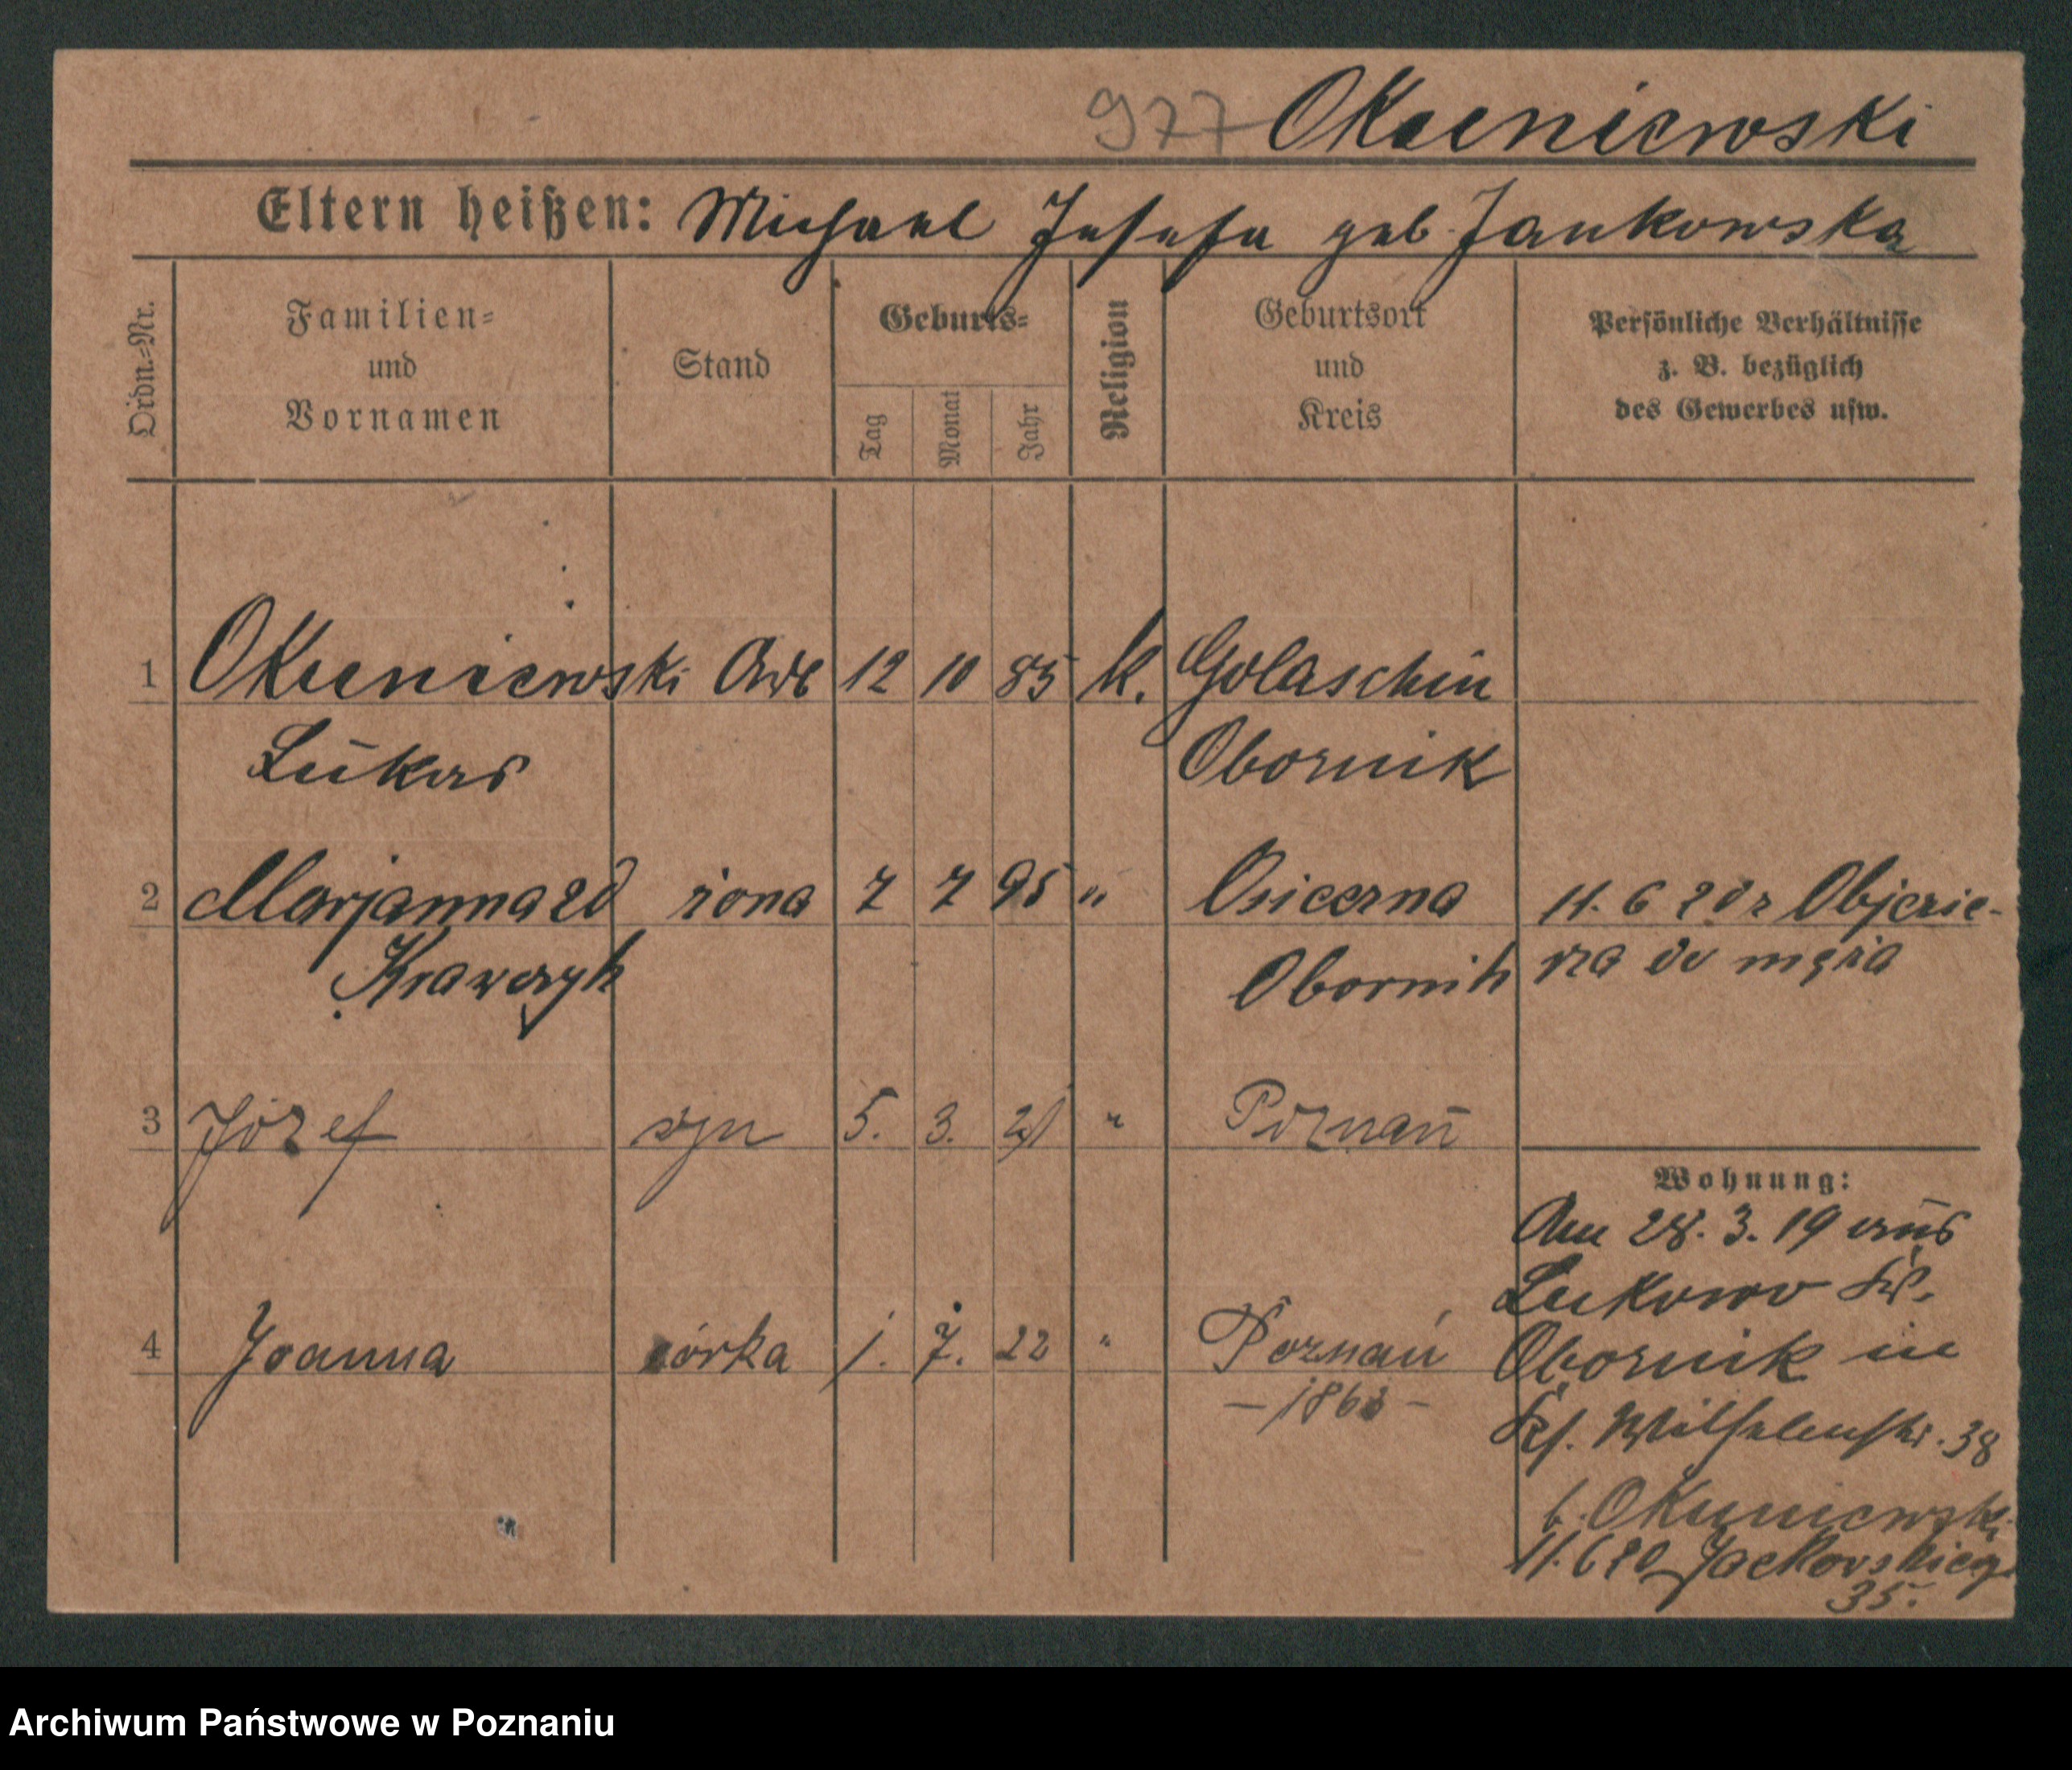 977 Okuniewski
Eltern heißen: Michael Josefa geb. Jankowska
Ordn.=Nr.
Familien=
und
Vornamen
Stand
Geburts=
Tag
Monat
Jahr
Religion
Geburtsort
und
Kreis
Persönliche Verhältnisse
z. B. bezüglich
des Gewerbes usw.
1 Okuniewski Arb 12 10 85 k. Golaschin
Lukas Obornik
2 Marjanna zd żona 7 7 95 " 11. 6 20 z Objezie-
Krawczyk Obornik rza do męża
3 Józef syn 5. 3. 21 " Poznań
Wohnung:
Am 28. 3. 19 aus
Lukowo Kr.
4 Joanna córka 1. 7. 22 " Poznań
Obornik in
Wilhelmstr. 38
b. Okuniewski
11. 6 20 Jackowskiego
35.
Archiwum Państwowe w Poznaniu